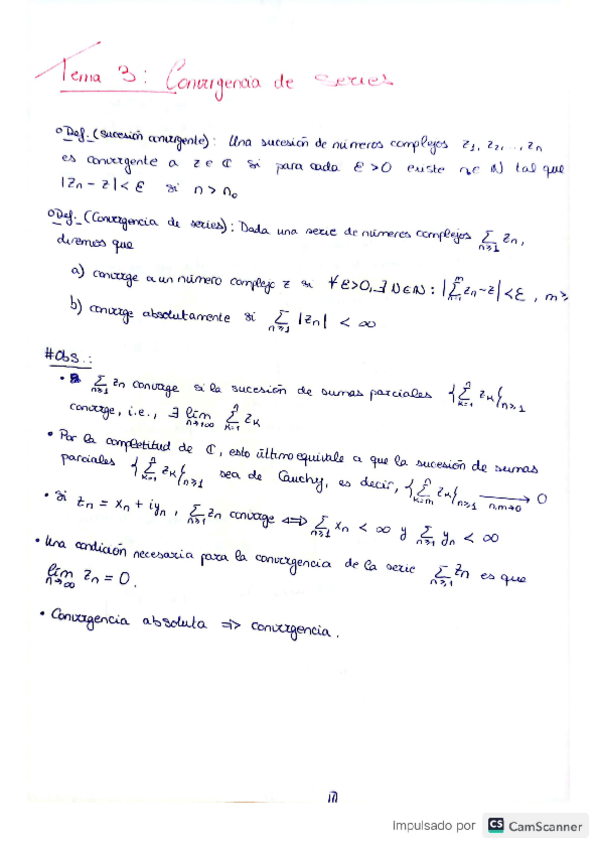 Tema 3: Convergencia de series
○ Def. (sucesión convergente): Una sucesión de números complejos z₁, z₂, ..., zₙ
es convergente a z ∈ ℂ si para cada ε > 0 existe n₀ ∈ ℕ tal que
|zₙ - z| < ε si n > n₀
○ Def. (Convergencia de series): Dada una serie de números complejos ∑_{n≥1} zₙ,
diremos que
a) converge a un número complejo z si ∀ε>0, ∃ N∈ℕ: |∑_{n=1}^{m} zₙ - z| < ε, m≥
b) converge absolutamente si ∑_{n≥1} |zₙ| < ∞
#Obs.:
• ∑_{n≥1} zₙ converge si la sucesión de sumas parciales {∑_{k=1}^{n} zₖ}_{n≥1}
converge, i.e., ∃ lim_{n→+∞} ∑_{k=1}^{n} zₖ
• Por la completitud de ℂ, esto último equivale a que la sucesión de sumas
parciales {∑_{k=1}^{n} zₖ}_{n≥1} sea de Cauchy, es decir, {∑_{k=m}^{n} zₖ}_{n≥1} ⟶_{n,m→0} 0
• Si zₙ = xₙ + iyₙ, ∑_{n≥1} zₙ converge ⟺ ∑_{n≥1} xₙ < ∞ y ∑_{n≥1} yₙ < ∞
• Una condición necesaria para la convergencia de la serie ∑_{n≥1} zₙ es que
lim_{n→∞} zₙ = 0.
• Convergencia absoluta ⟹ convergencia.
Impulsado por CS CamScanner